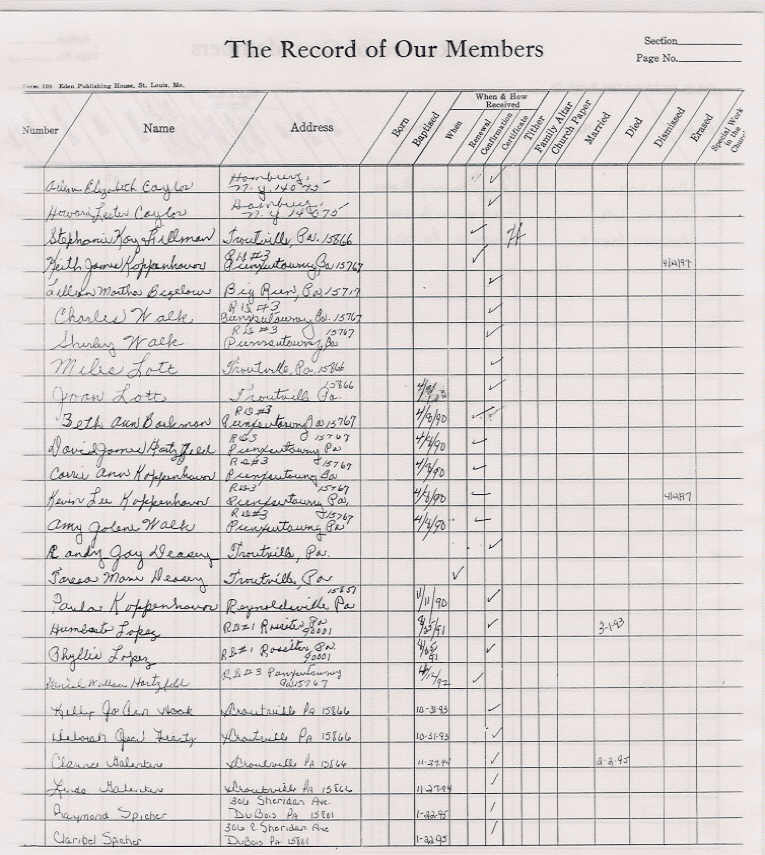 The Record of Our Members
Section
Page No.
Form 100 Eden Publishing House, St. Louis, Mo.
When & How Received
Number Name Address Born Baptised When Renewal Confirmation Certificate Tither Family Altar Church Paper Married Died Dismissed Erased Special Work in the Church
Elizabeth Caylor Hamburg, N.Y. 14075
Howard Lester Caylor Hamburg, N.Y. 14075
Stephanie Kay Hillman Troutville, Pa. 15866
Keith James Koppenhaver RD#3 Punxsutawney Pa 15767
Lillian Martha Bigelow Big Run, Pa 15717
Charles Walk RD#3 Punxsutawney Pa. 15767
Shirley Walk RD#3 15767 Punxsutawney Pa
Miles Lott Troutville, Pa. 15866
Joan Lott 15866 Troutville Pa.
Beth Ann RD#3 Punxsutawney Pa 15767 4/8/90
David James Hartzfeld RD3 15767 Punxsutawney Pa 4/8/90
Carrie Ann Koppenhaver RD#3 15767 Punxsutawney Pa 4/8/90
Kevin Lee Koppenhaver RD3 15767 Punxsutawney Pa. 4/8/90
Amy Jolene Walk RD#3 15767 Punxsutawney Pa 4/8/90
Randy Gay Deasey Troutville, Pa.
Teresa Marie Deasey Troutville, Pa
Paula Koppenhaver 15851 Reynoldsville Pa 11/11/90
Humberto Lopez RD#1 Rossiter Pa 3-1-93
Phyllis Lopez RD#1 Rossiter Pa
Hartzfeld RD#3 Punxsutawney Pa 15767
Kelly Jo Ann Troutville Pa 15866 10-31-93
Deborah Troutville Pa 15866 10-31-93
Clarence Galentine Troutville Pa 15866 11-27-94 2-2-95
Linda Galentine Troutville Pa 15866 11-27-94
Raymond Spicher 306 Sheridan Ave. DuBois Pa 15801 1-22-95
Claribel Spicher 306 E. Sheridan Ave DuBois Pa 15801 1-22-95